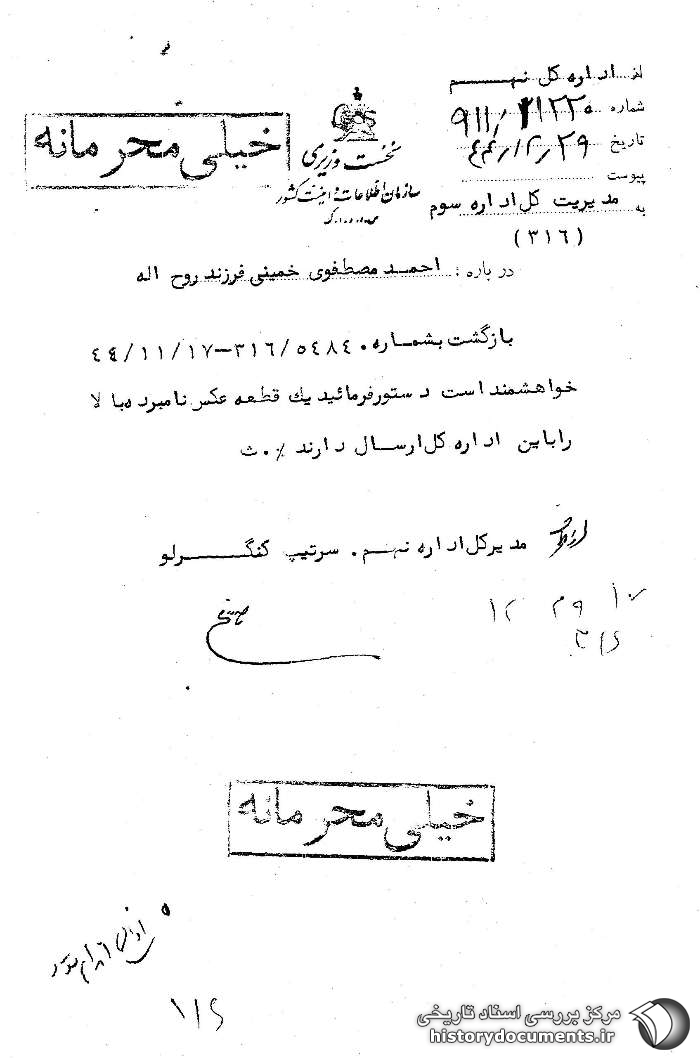 از اداره کل نهم
شماره ۹۱۱/۳۱۲۲۰
تاریخ ۴۴/۱۲/۲۹
پیوست
به مدیریت کل اداره سوم
(۳۱۶)
خیلی محرمانه
نخست وزیری
سازمان اطلاعات و امنیت کشور
س.ا.و.ا.ک
درباره : احمد مصطفوی خمینی فرزند روح اله
بازگشت بشماره ۳۱۶/۵۴۸۴۰-۴۴/۱۱/۱۷
خواهشمند است دستور فرمائید یك قطعه عکس نامبرده بالا
را باین اداره کل ارسال دارند ٪. ث
مدیرکل اداره نهم . سرتیپ کنگرلو
۳۱۶
خیلی محرمانه
۱/۶
مرکز بررسی اسناد تاریخی
historydocuments.ir